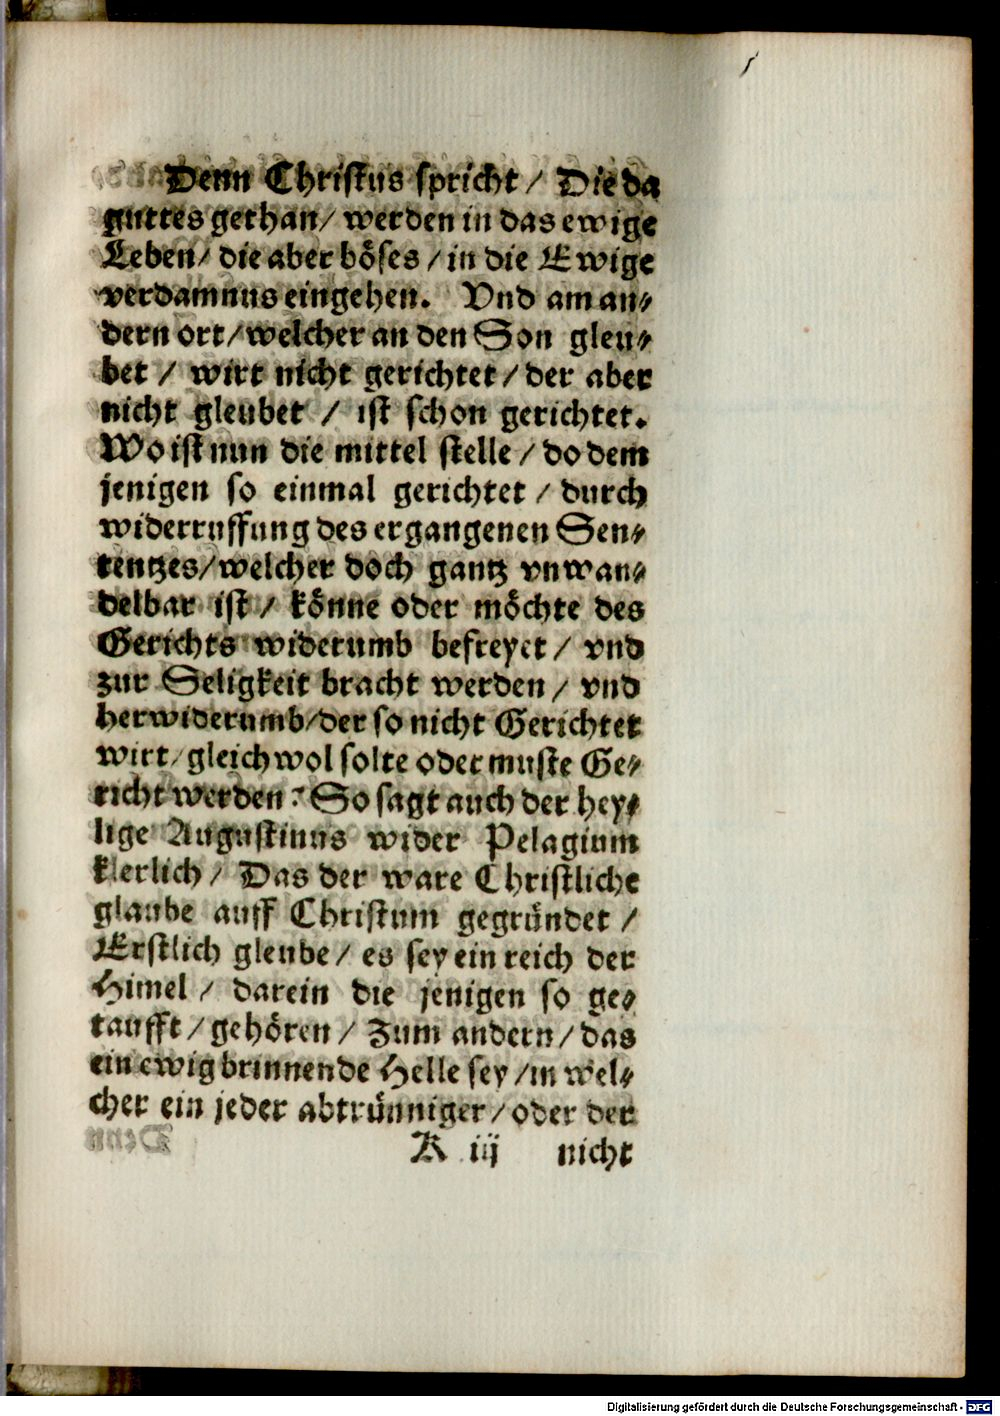 Denn Christus spricht / Die da
guttes gethan / werden in das ewige
Leben / die aber böses / in die Ewige
verdamnus eingehen. Vnd am an⸗
dern ort / welcher an den Son gleu⸗
bet / wirt nicht gerichtet / der aber
nicht gleubet / ist schon gerichtet.
Wo ist nun die mittel stelle / do dem
jenigen so einmal gerichtet / durch
widerruffung des ergangenen Sen⸗
tentzes / welcher doch gantz vnwan⸗
delbar ist / könne oder möchte des
Gerichts widerumb befreyet / vnd
zur Seligkeit bracht werden / vnd
herwiderumb / der so nicht Gerichtet
wirt / gleich wol solte oder muste Ge⸗
richt werden? So sagt auch der hey⸗
lige Augustinus wider Pelagium
klerlich / Das der ware Christliche
glaube auff Christum gegründet /
Erstlich gleube / es sey ein reich der
Himel / darein die jenigen so ge⸗
taufft / gehören / Zum andern / das
ein ewig brinnende Helle sey / in wel⸗
cher ein jeder abtrünniger / oder der
K iij nicht
Digitalisierung gefördert durch die Deutsche Forschungsgemeinschaft - DFG